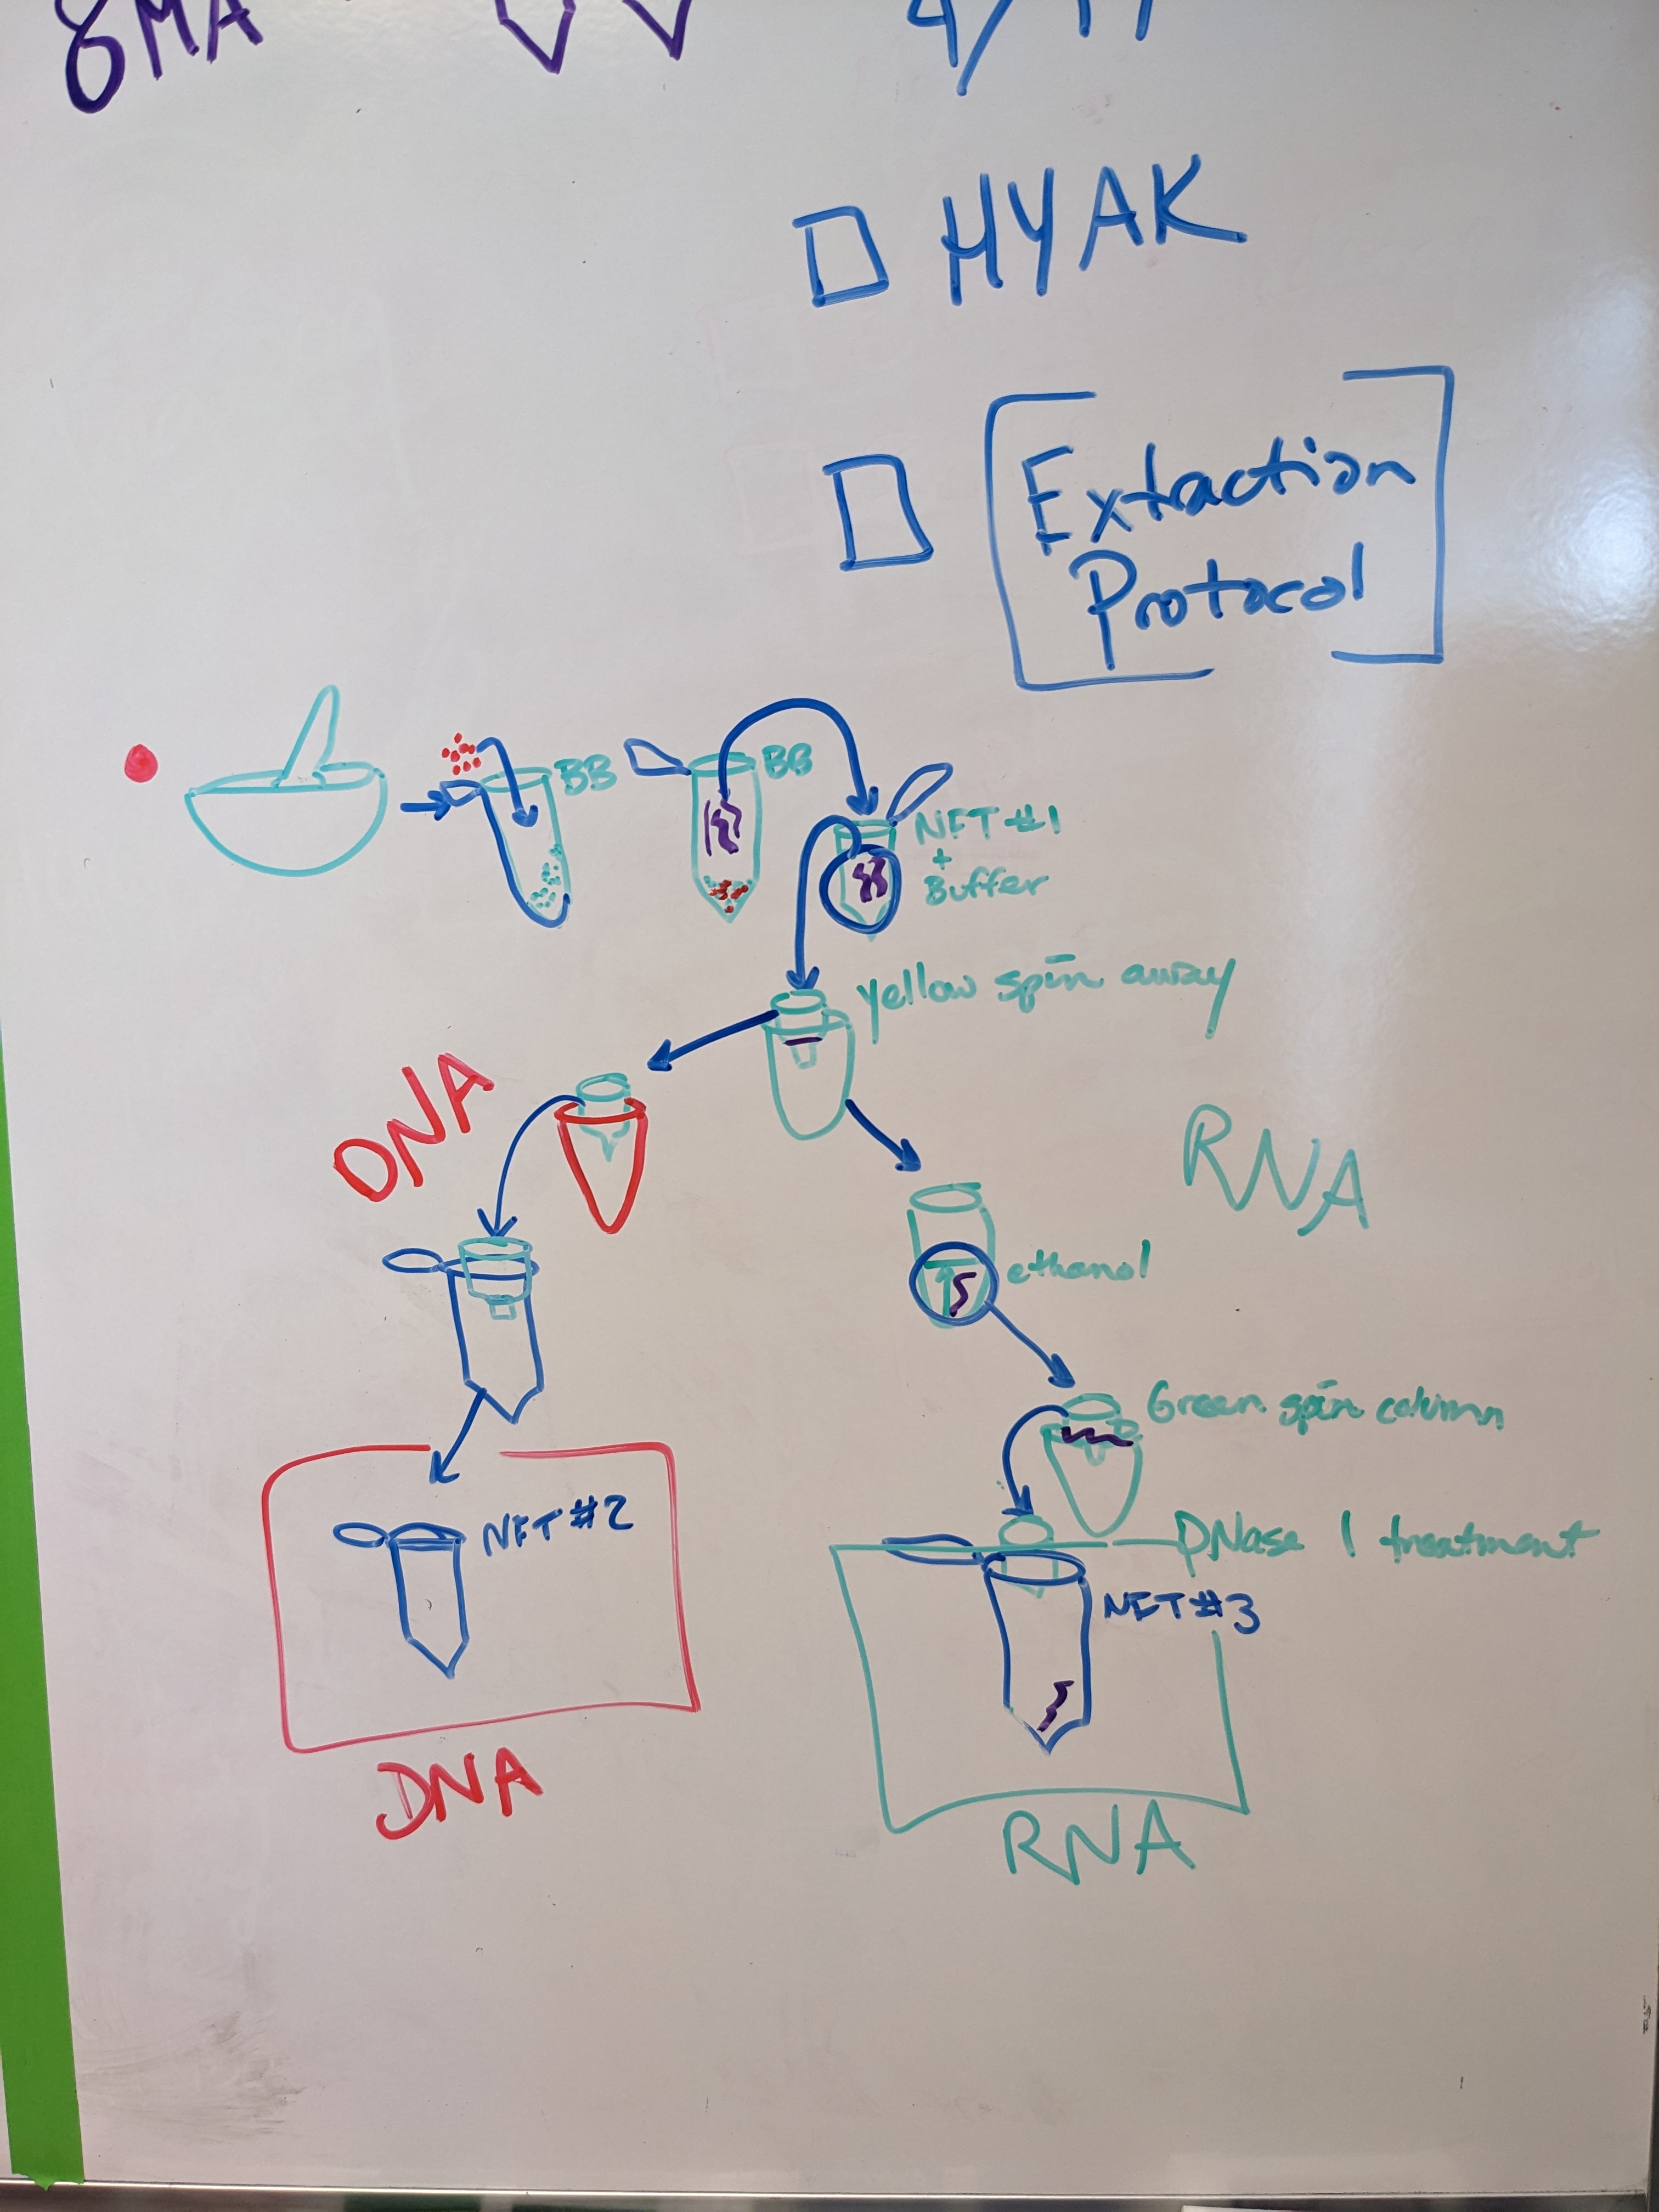 8MA
4/17
HYAK
Extraction
Protocol
BB
BB
NFT #1
+
Buffer
yellow spin away
DNA
RNA
ethanol
Green spin column
NFT #2
DNase 1 treatment
NFT #3
DNA
RNA